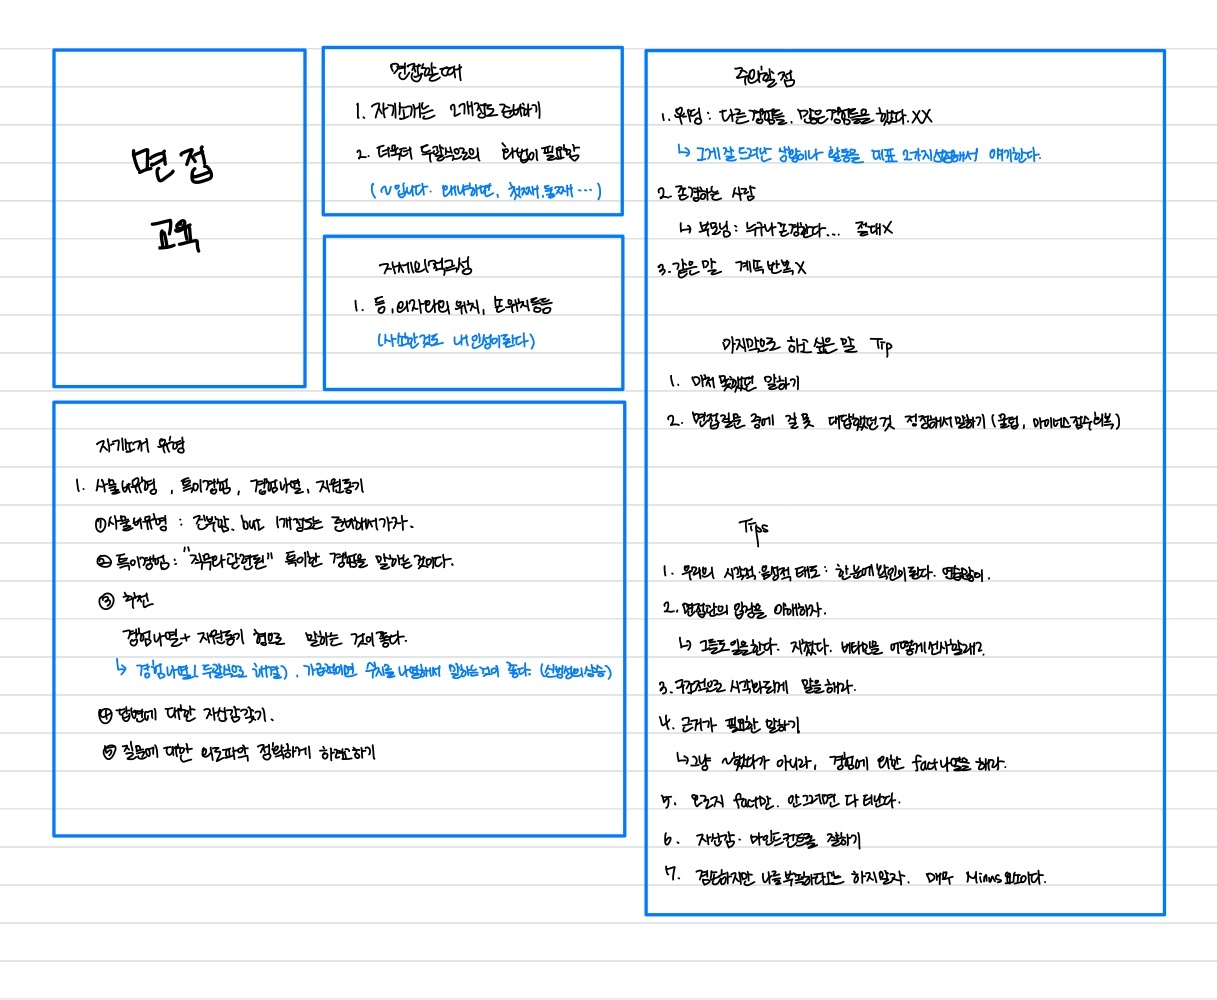 면접
교육
면접할때
1. 자기소개는 2개정도 준비하기
2. 더욱더 두괄식으로의 화법이 필요함
(~입니다. 왜냐하면, 첫째, 둘째 …)
자세의 적극성
1. 등, 의자와의 위치, 손위치 등등
(사소한것도 내 인성이 된다)
자기소개 유형
1. 사물비유형, 특이경험, 경험나열, 지원동기
① 사물비유형 : 진부함, but 1개정도는 준비해서가자.
② 특이경험 : "직무와 관련된" 특이한 경험을 말하는 것이다.
③ 추천
경험나열 + 지원동기 형으로 말하는 것이 좋다.
↳ 경험나열(두괄식으로 해결), 가급적이면 수치를 나열해서 말하는것이 좋다. (신빙성의 상승)
④ 답변에 대한 자신감갖기.
⑤ 질문에 대한 의도파악 정확하게 하려고하기
주의할 점
1. 워딩 : 다른 경험들, 많은 경험들을 했다. XX
↳ 그게 잘 드러난 상황이나 활동을 대표 2가지 선정해서 얘기한다.
2. 존경하는 사람
↳ 부모님 : 누구나 존경한다… 절대X
3. 같은 말 계속 반복X
마지막으로 하고 싶은 말 Tip
1. 미처 못했던 말하기
2. 면접질문 중에 잘못 대답했던것 정정해서 말하기 (꿀팁, 마이너스점수회복)
Tips
1. 우리의 시각적·음성적 태도 : 한눈에 확인이 된다. 연습많이.
2. 면접관의 입장을 이해하자.
↳ 그들도 일을한다. 지쳤다. 비타민을 어떻게 선사할래?
3. 구조적으로 시각화되게 말을해라.
4. 근거가 필요한 말하기
↳ 그냥 ~했다가 아니라, 경험에 의한 fact나열을 해라.
5. 오로지 fact만. 안그러면 다 티난다.
6. 자신감·마인드컨트롤 잘하기
7. 겸손하지만 나를 부족하다고는 하지말자. 매우 Minus 요소이다.